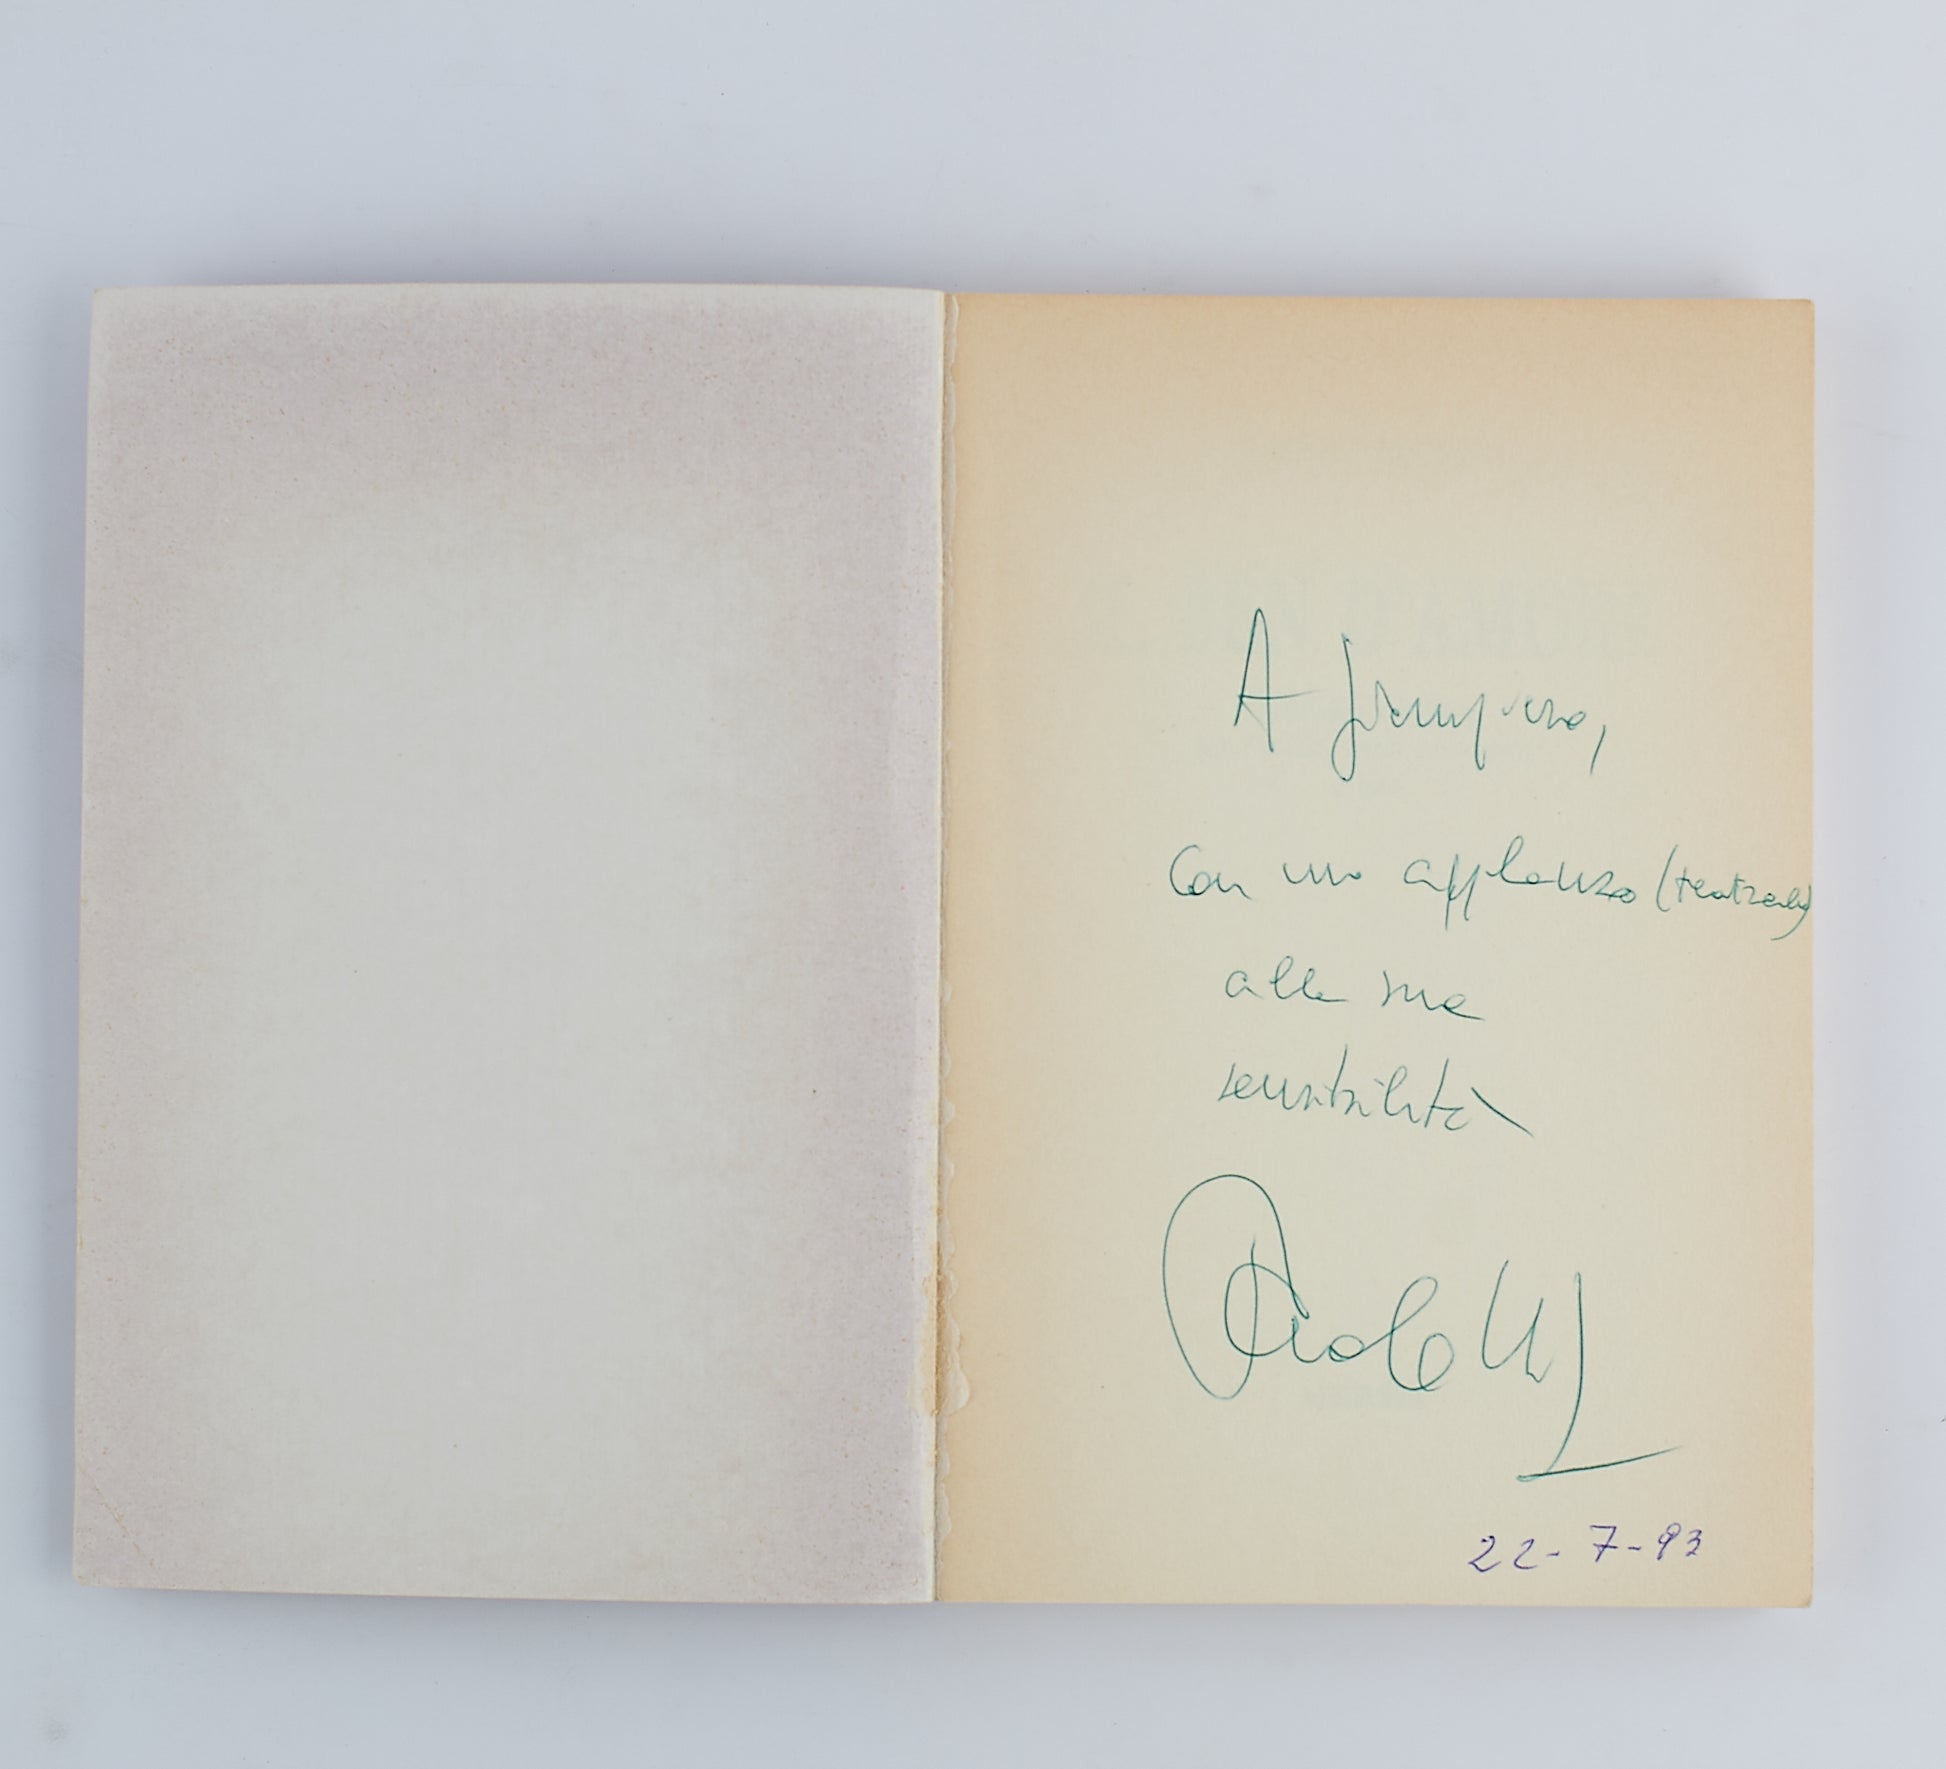 A Giampiero,
con un applauso (teatrale)
alla sua
sensibilità
Paolo
22-7-93